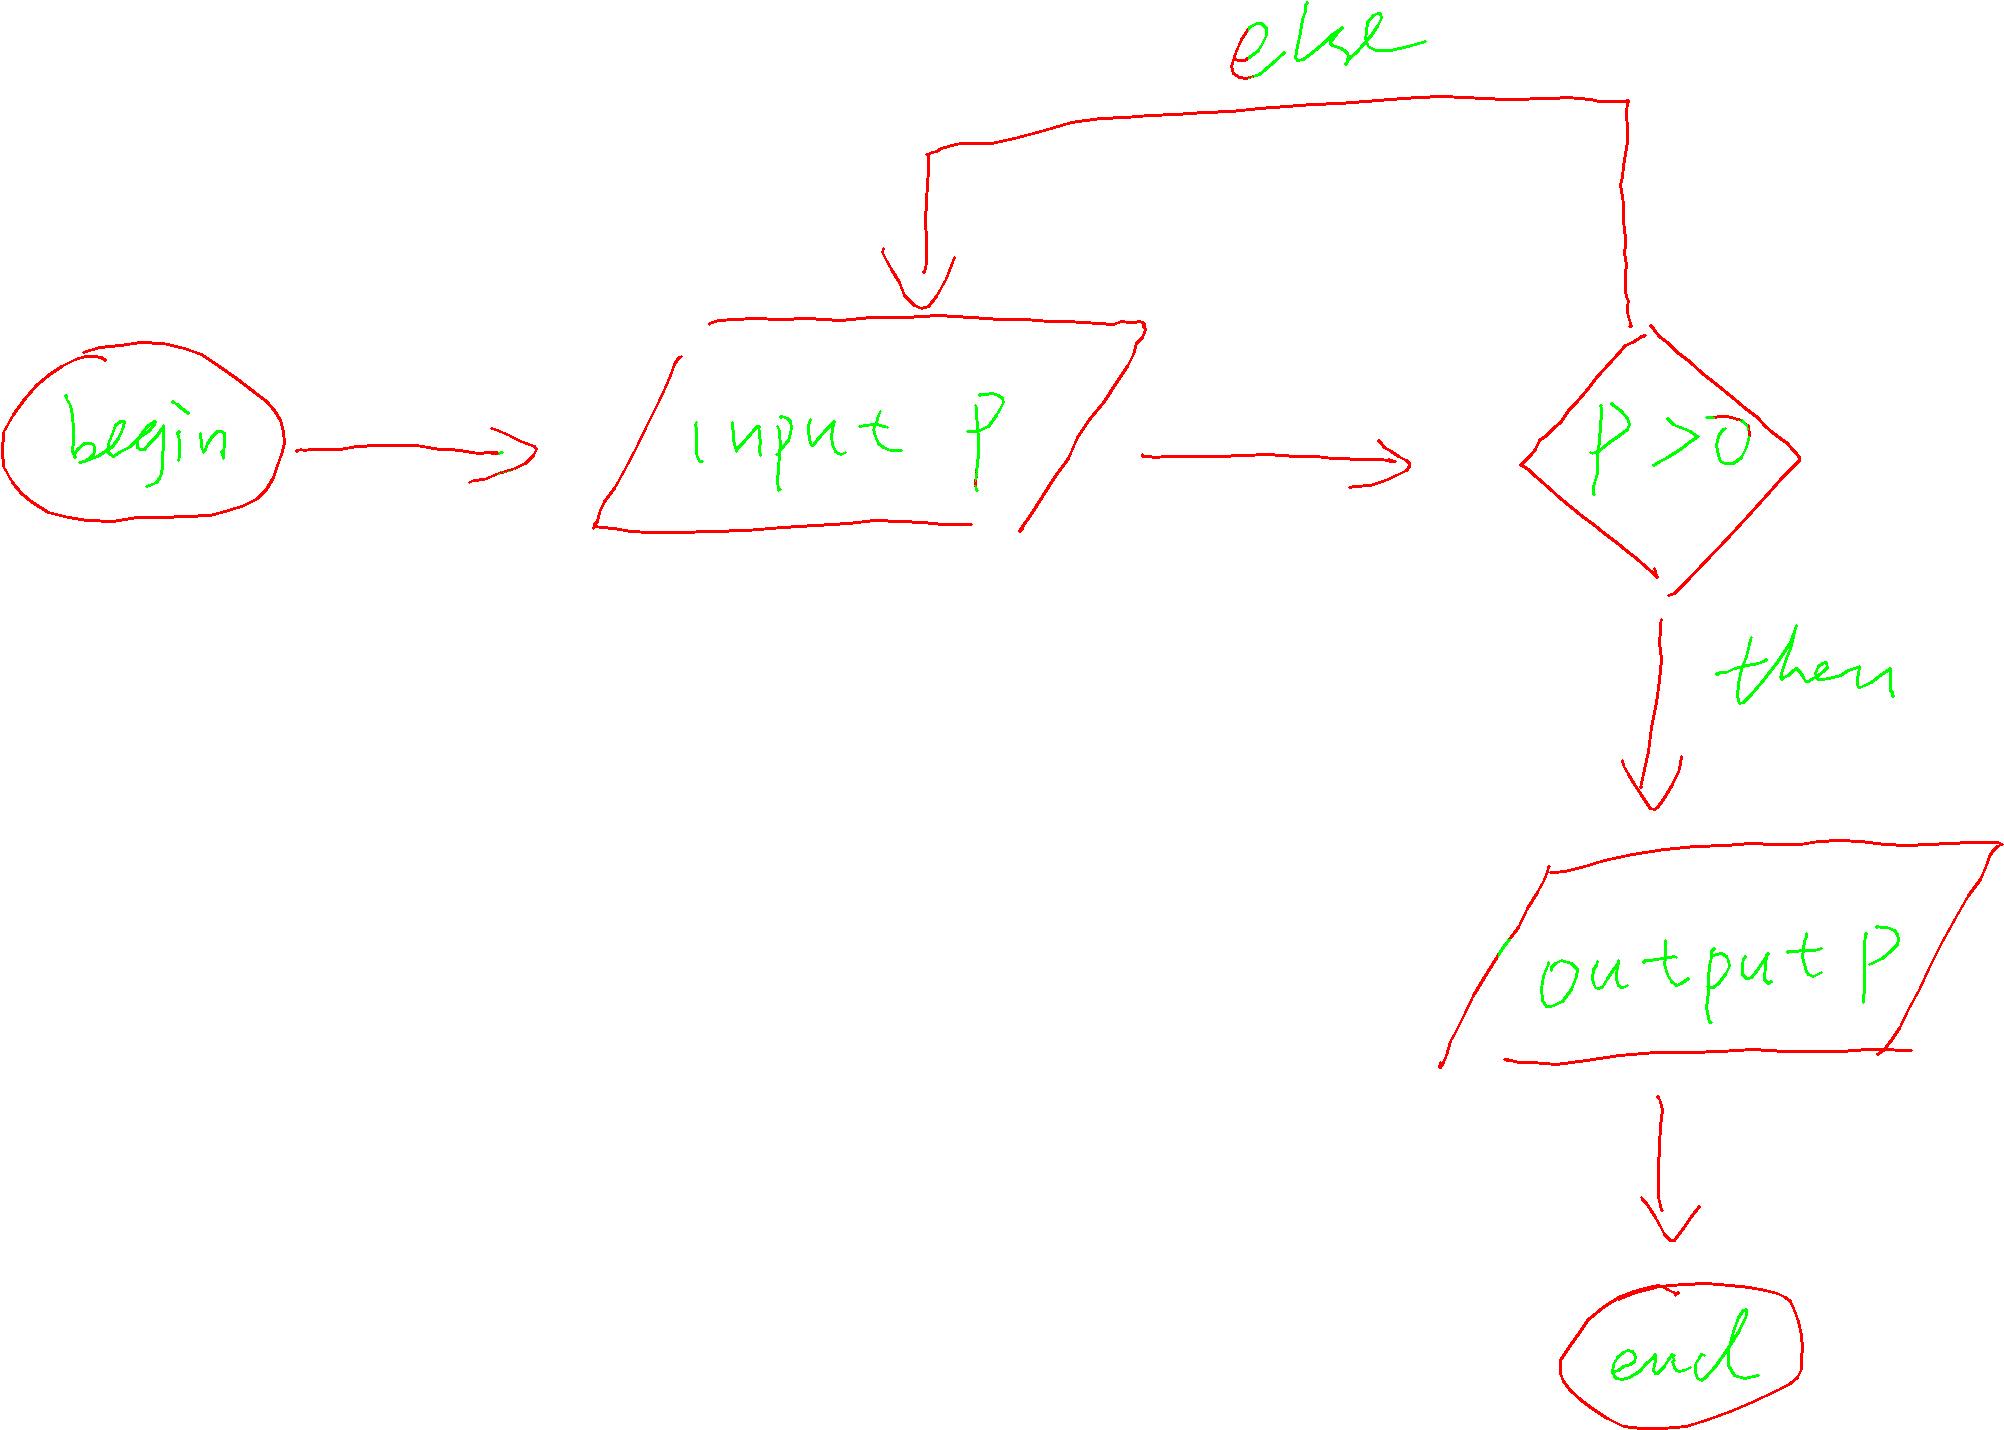 else
begin
input P
P >0
then
output P
end